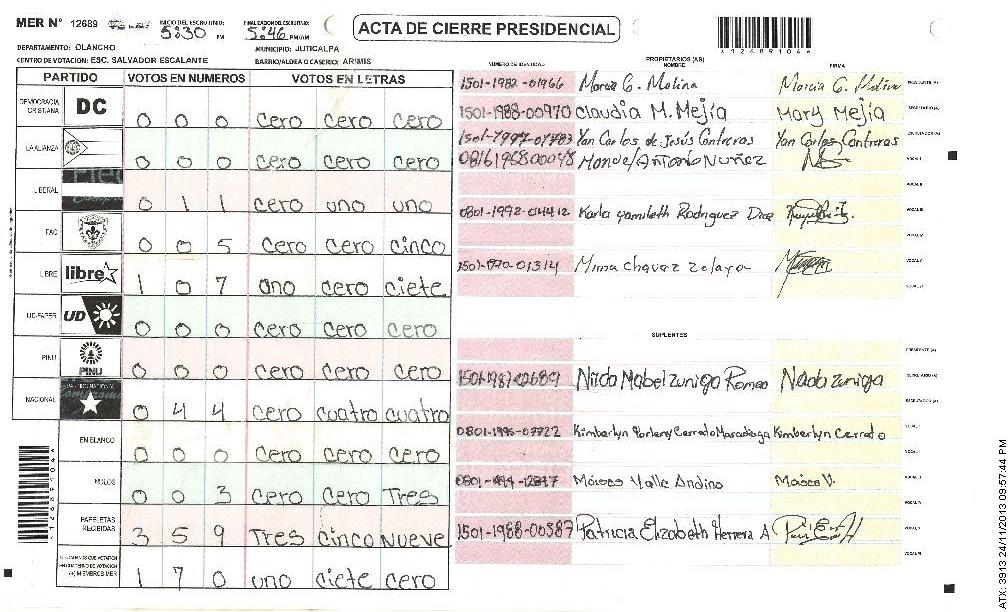 MER N° 12689
INICIO DEL ESCRUTINIO: 5:30 PM
FINALIZACION DEL ESCRUTINIO: 5:46 PM/AM
ACTA DE CIERRE PRESIDENCIAL
12689104
DEPARTAMENTO: OLANCHO
MUNICIPIO: JUTICALPA
CENTRO DE VOTACION: ESC. SALVADOR ESCALANTE
BARRIO/ALDEA O CASERIO: ARIMIS
PARTIDO VOTOS EN NUMEROS VOTOS EN LETRAS
DEMOCRACIA CRISTIANA DC 0 0 0 cero cero cero
LA ALIANZA 0 0 0 cero cero cero
LIBERAL 0 1 1 cero uno uno
FAC 0 0 5 cero cero cinco
LIBRE libre 1 0 7 uno cero ciete
UD-FAPER UD 0 0 0 cero cero cero
PINU PINU 0 0 0 cero cero cero
NACIONAL 0 4 4 cero cuatro cuatro
EN BLANCO 0 0 0 cero cero cero
NULOS 0 0 3 cero cero Tres
PAPELETAS RECIBIDAS 3 5 9 Tres cinco nueve
CIUDADANOS QUE VOTARON EN CUADERNO DE VOTACION (+) MIEMBROS MER 1 7 0 uno ciete cero
PROPIETARIOS (AS)
NUMERO DE IDENTIDAD NOMBRE FIRMA
1501-1982-01966 Marcia G. Molina Marcia G. Molina PRESIDENTE (A)
1501-1988-00970 Claudia M. Mejía Mary Mejía SECRETARIO (A)
Yan Carlos de Jesús Contreras Yan Carlos Contreras ESCRUTADOR (A)
Manuel Antonio Nuñez VOCAL I
VOCAL II
0801-1992-04412 Karla Yamileth Rodriguez Diaz VOCAL III
VOCAL IV
Mirna Chavez Zelaya VOCAL V
VOCAL VI
SUPLENTES
PRESIDENTE (A)
1501-1987-02689 Nilda Mabel Zuniga Romeo Nilda Zuniga SECRETARIO (A)
ESCRUTADOR (A)
0801-1995-07722 Kimberlyn Cerrato Kimberlyn Cerrato VOCAL I
VOCAL II
Valle Andino VOCAL III
VOCAL IV
1501-1988-00587 Patricia Elizabeth Herrera A VOCAL V
VOCAL VI
12689104
ATX: 3913 24/11/2013 09:57:44 PM